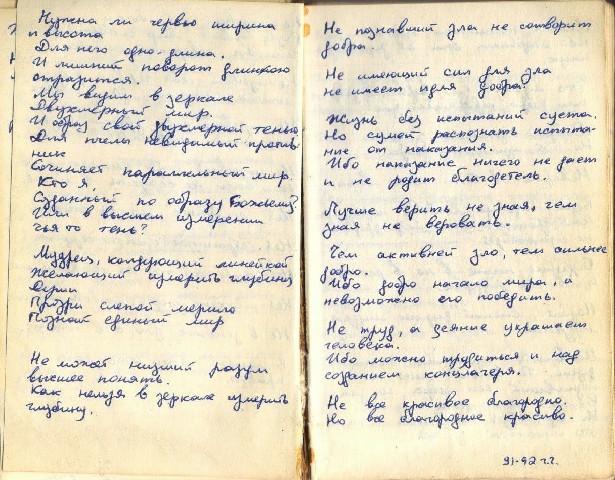 Нужна ли червю ширина
и высота
Для него одно - длина.
И лишний поворот длинною
отразится.
Мы видим в зеркале
Двухмерный мир.
И образ свой двухмерной тенью
Для пчелы невидимый против-
ник
Сочиняет параллельный мир.
Кто я,
Созданный по образу Божьему?
Или в высшем измерении
чья то тень?
Мудрец, линейкой
желающий измерить глубину
Души
Презри слепой мерило
Познай единый мир
Не может низший разум
высшее понять.
Как нельзя в зеркале измерить
глубину.
Не познавший зла не сотворит
добра.
Не имеющий сил для зла
не имеет и для добра.
Жизнь без испытаний суета.
Но сумей распознать испыта-
ние от наказания.
Ибо наказание ничего не дает
и не родит благодетель.
Лучше верить не зная, чем
зная не веровать.
Чем активней зло, тем сильнее
добро.
Ибо добро начало мира, и
невозможно его победить.
Не труд, а деяние украшает
человека.
Ибо можно трудиться и над
созданием концлагеря.
Не все красивое благородно.
Но все благородное красиво.
91-92 г.г.